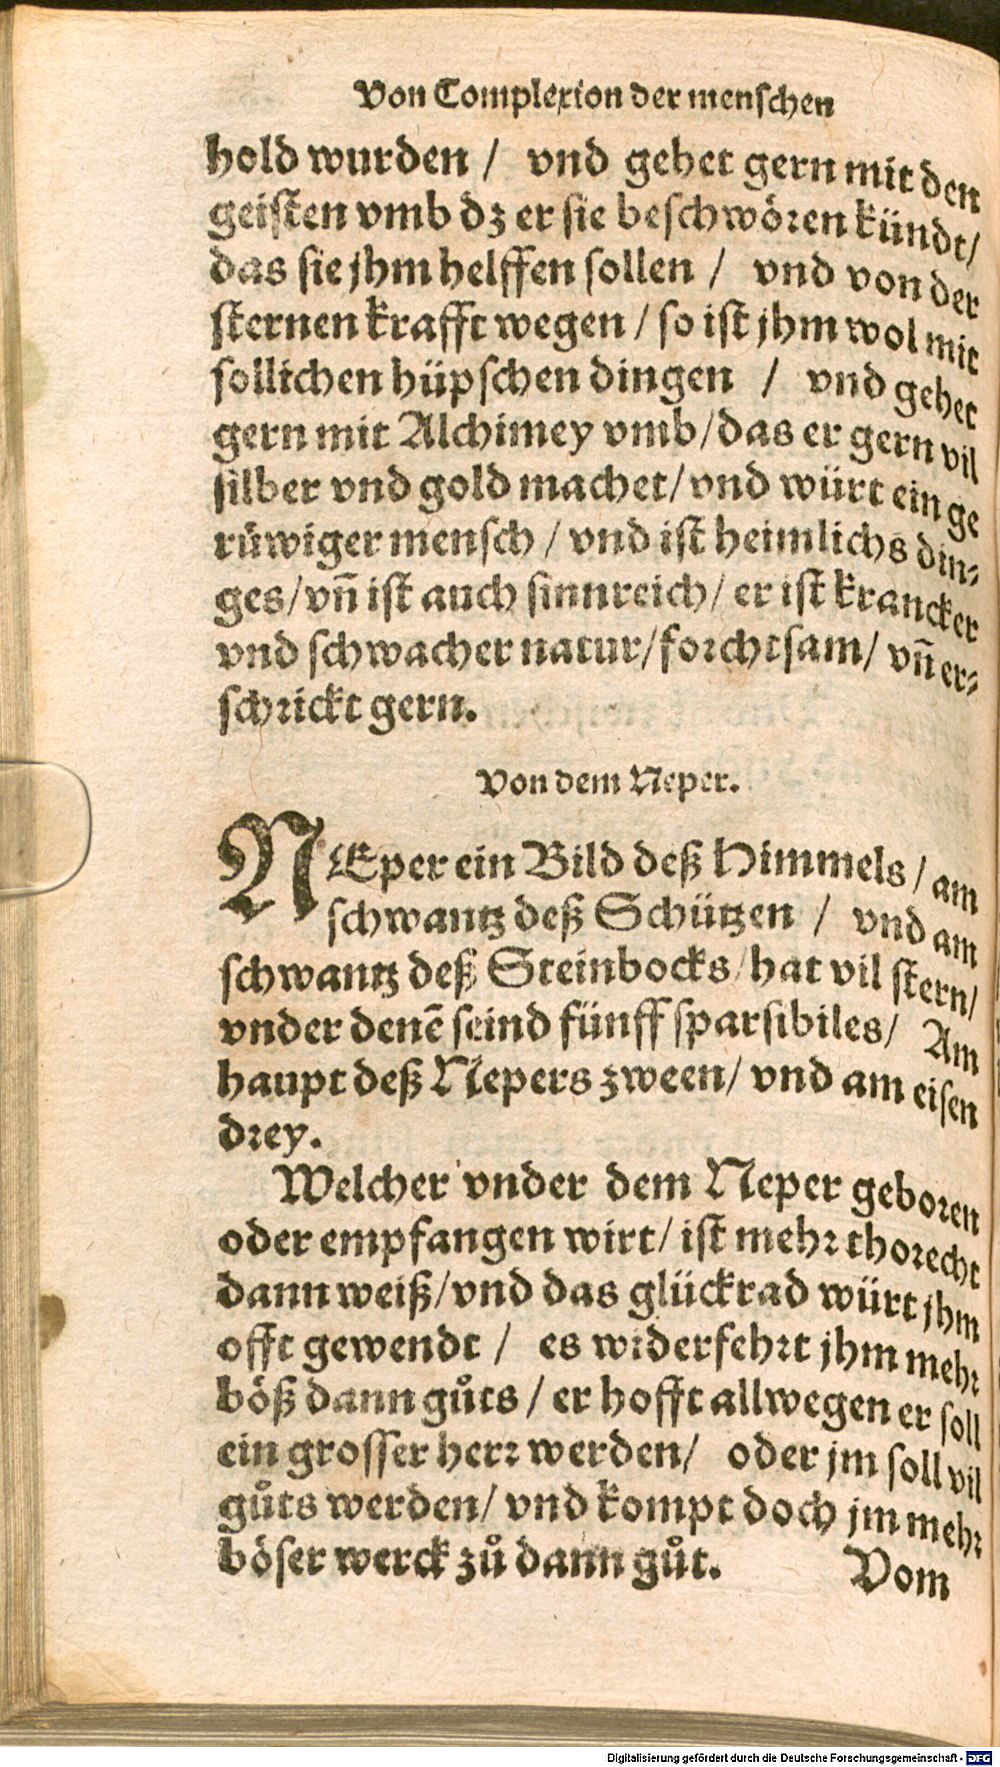 Von Complexion der menschen
hold wurden / vnd gehet gern mit den
geisten vmb dz er sie beschwören kündt/
das sie jhm helffen sollen / vnd von der
sternen krafft wegen / so ist jhm wol mit
sollichen hüpschen dingen / vnd gehet
gern mit Alchimey vmb/das er gern vil
silber vnd gold machet/vnd würt ein ge
rüwiger mensch / vnd ist heimlichs din⸗
ges/vñ ist auch sinnreich/ er ist krancker
vnd schwacher natur/forchtsam/ vñ er⸗
schrickt gern.
Von dem Neper.
NEper ein Bild deß Himmels / am
schwantz deß Schützen / vnd am
schwantz deß Steinbocks/hat vil stern/
vnder denẽ seind fünff sparsibiles/ Am
haupt deß Nepers zween/ vnd am eisen
drey.
Welcher vnder dem Neper geboren
oder empfangen wirt/ ist mehr thorecht
dann weiß/vnd das glückrad würt jhm
offt gewendt / es widerfehrt jhm mehr
böß dann gůts / er hofft allwegen er soll
ein grosser herr werden/ oder jm soll vil
gůts werden/ vnd kompt doch jm mehr
böser werck zů dann gůt.
Vom
Digitalisierung gefördert durch die Deutsche Forschungsgemeinschaft - DFG